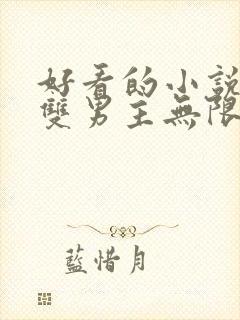 好看的小說
雙男主無限
藍惜月